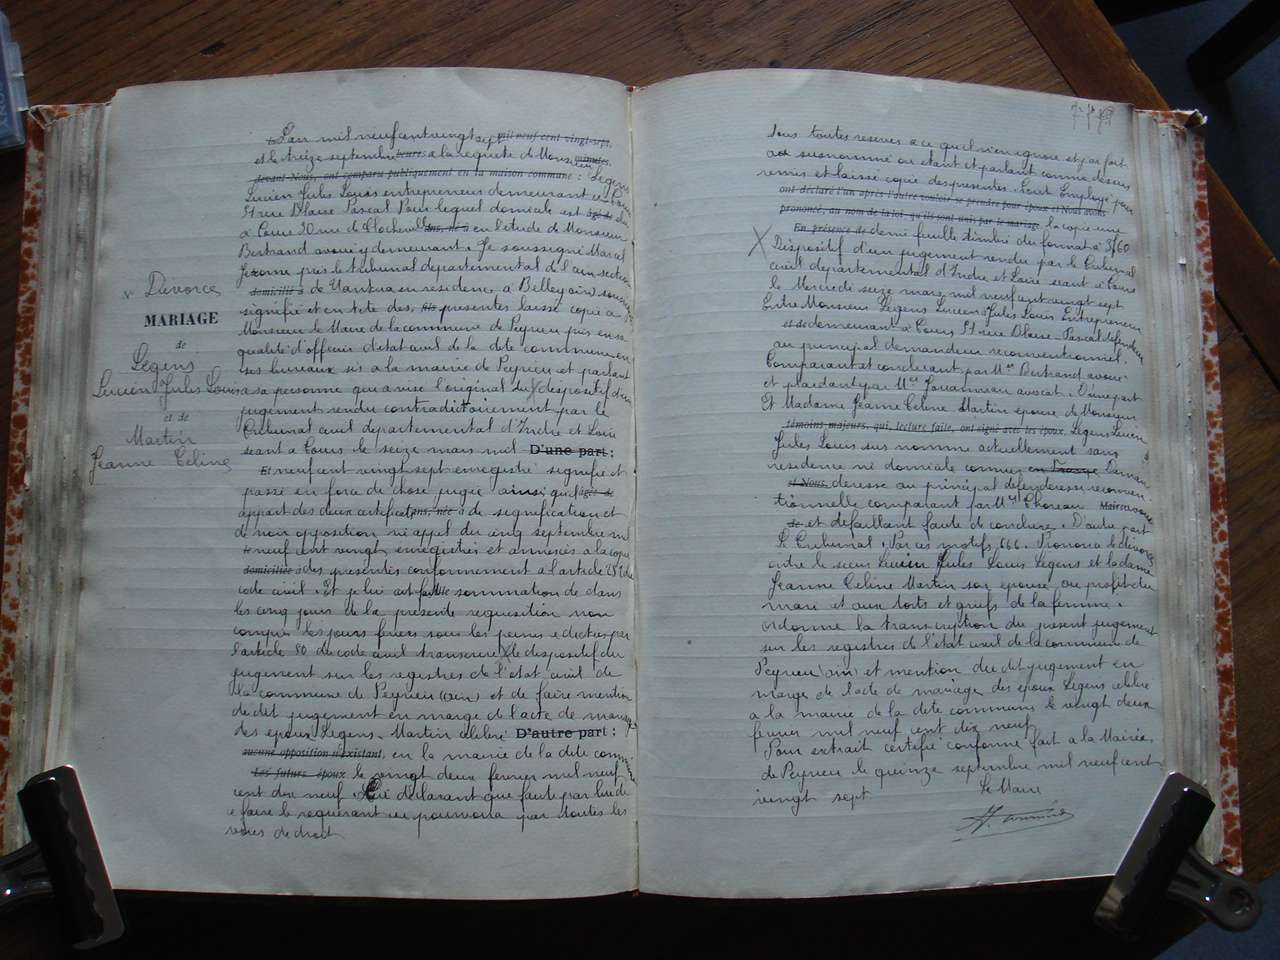 N° Divorce
MARIAGE
de
Légens
Lucien Jules Louis
et de
Martin
Jeanne Céline
L'an mil neuf cent vingt sept mil neuf cent vingt-sept,
et le treize septembre heures a la requete de Monsieur minutes,
devant Nous, ont comparu publiquement en la maison commune : Légens
Lucien Jules Louis entrepreneur demeurant à Tours
51 rue Blaise Pascal Pour lequel domicile est élu
à Tours 20 rue de en l'étude de Monsieur
Bertrand avoué y demeurant. Je soussigné Marcel
près le tribunal departemental de l'ain section
domicilié à de Nantua en residence à Belley (ain) soussigné
signifié et en tête des, fils presentes laissé copie a
Monsieur le Maire de la commune de Peyrieu pris en sa
qualité d'officier d'etat civil de la dite commune en
ses bureaux sis a la mairie de Peyrieu et parlant
a sa personne qui a visé l'original du X dispositif d'un
jugement rendu contradictoirement par le
Tribunal civil departemental d'Indre et Loire
seant a Tours le seize mars mil D'une part :
Et neuf cent vingt sept enregistré signifié et
passé en force de chose jugée ainsi qu'il âgée de
appert des deux certificats ans, née à de signification et
de non opposition ni appel du cinq septembre mil
neuf cent vingt enregistrés et annexés a la copie
domiciliée à des presentes conformement a l'article 251 du
code civil. Et je lui ait fait fille sommation de dans
les cinq jours de la presente requisition non
compris les jours feriés sous les peines edictées par
l'article 50 du code civil transcrire le dispositif du
jugement sur les registres de l'état civil de
la commune de Peyrieu (ain) et de faire mention
du dit jugement en marge de l'acte de mariage
des epoux Légens. Martin célébré D'autre part :
aucune opposition n'existant, en la mairie de la dite commune
Les futurs époux le vingt deux fevrier mil neuf
cent dix neuf. Lui déclarant que faute par lui de
ce faire le requerant se pourvoira par toutes les
voies de droit
Sous toutes reserves a ce qu'il n'en ignore et j'ai fait
au susnommé ou etant et parlant comme dessus
remis et laissé copie des presentes. Coût Employé pour
ont déclaré l'un après l'autre vouloir se prendre pour époux et Nous avons
prononcé, au nom de la loi, qu'ils sont unis par le mariage la copie une
En présence de demi feuille timbre du format à 3f60
X Dispositif d'un jugement rendu par le Tribunal
civil departemental d'Indre et Loire seant à Tours
le Mercredi seize mars mil neuf cent vingt sept
Entre Monsieur Légens Lucien Jules Louis Entrepreneur
et de demeurant à Tours 51 rue Blaise Pascal défendeur
au principal demandeur reconventionnel.
Comparant et concluant par Me Bertrand avoué
et plaidant par Me Jouanneau avocat. D'une part
Et Madame Jeanne Céline Martin epouse de Monsieur
témoins majeurs, qui, lecture faite, ont signé avec les époux, Légens Lucien
Jules Louis sus nommé actuellement sans
residence ni domicile connus en France Deman
et Nous, deresse au principal defenderesse reconven
tionnelle comparant par Me Thoreau Maire avoué
de et defaillant faute de conclure. D'autre part
Le Tribunal. Par ces motifs, 666. Prononce le divorce
entre le sieur Lucien Jules Louis Légens et la dame
Jeanne Céline Martin son epouse, au profit du
mari et aux torts et griefs de la femme.
Ordonne la transcription du present jugement
sur les registres de l'état civil de la commune de
Peyrieu (ain) et mention du dit jugement en
marge de l'acte de mariage des époux Légens célébré
a la mairie de la dite commune le vingt deux
fevrier mil neuf cent dix neuf
Pour extrait certifié conforme fait a la Mairie
de Peyrieu le quinze septembre mil neuf cent
vingt sept
Le Maire